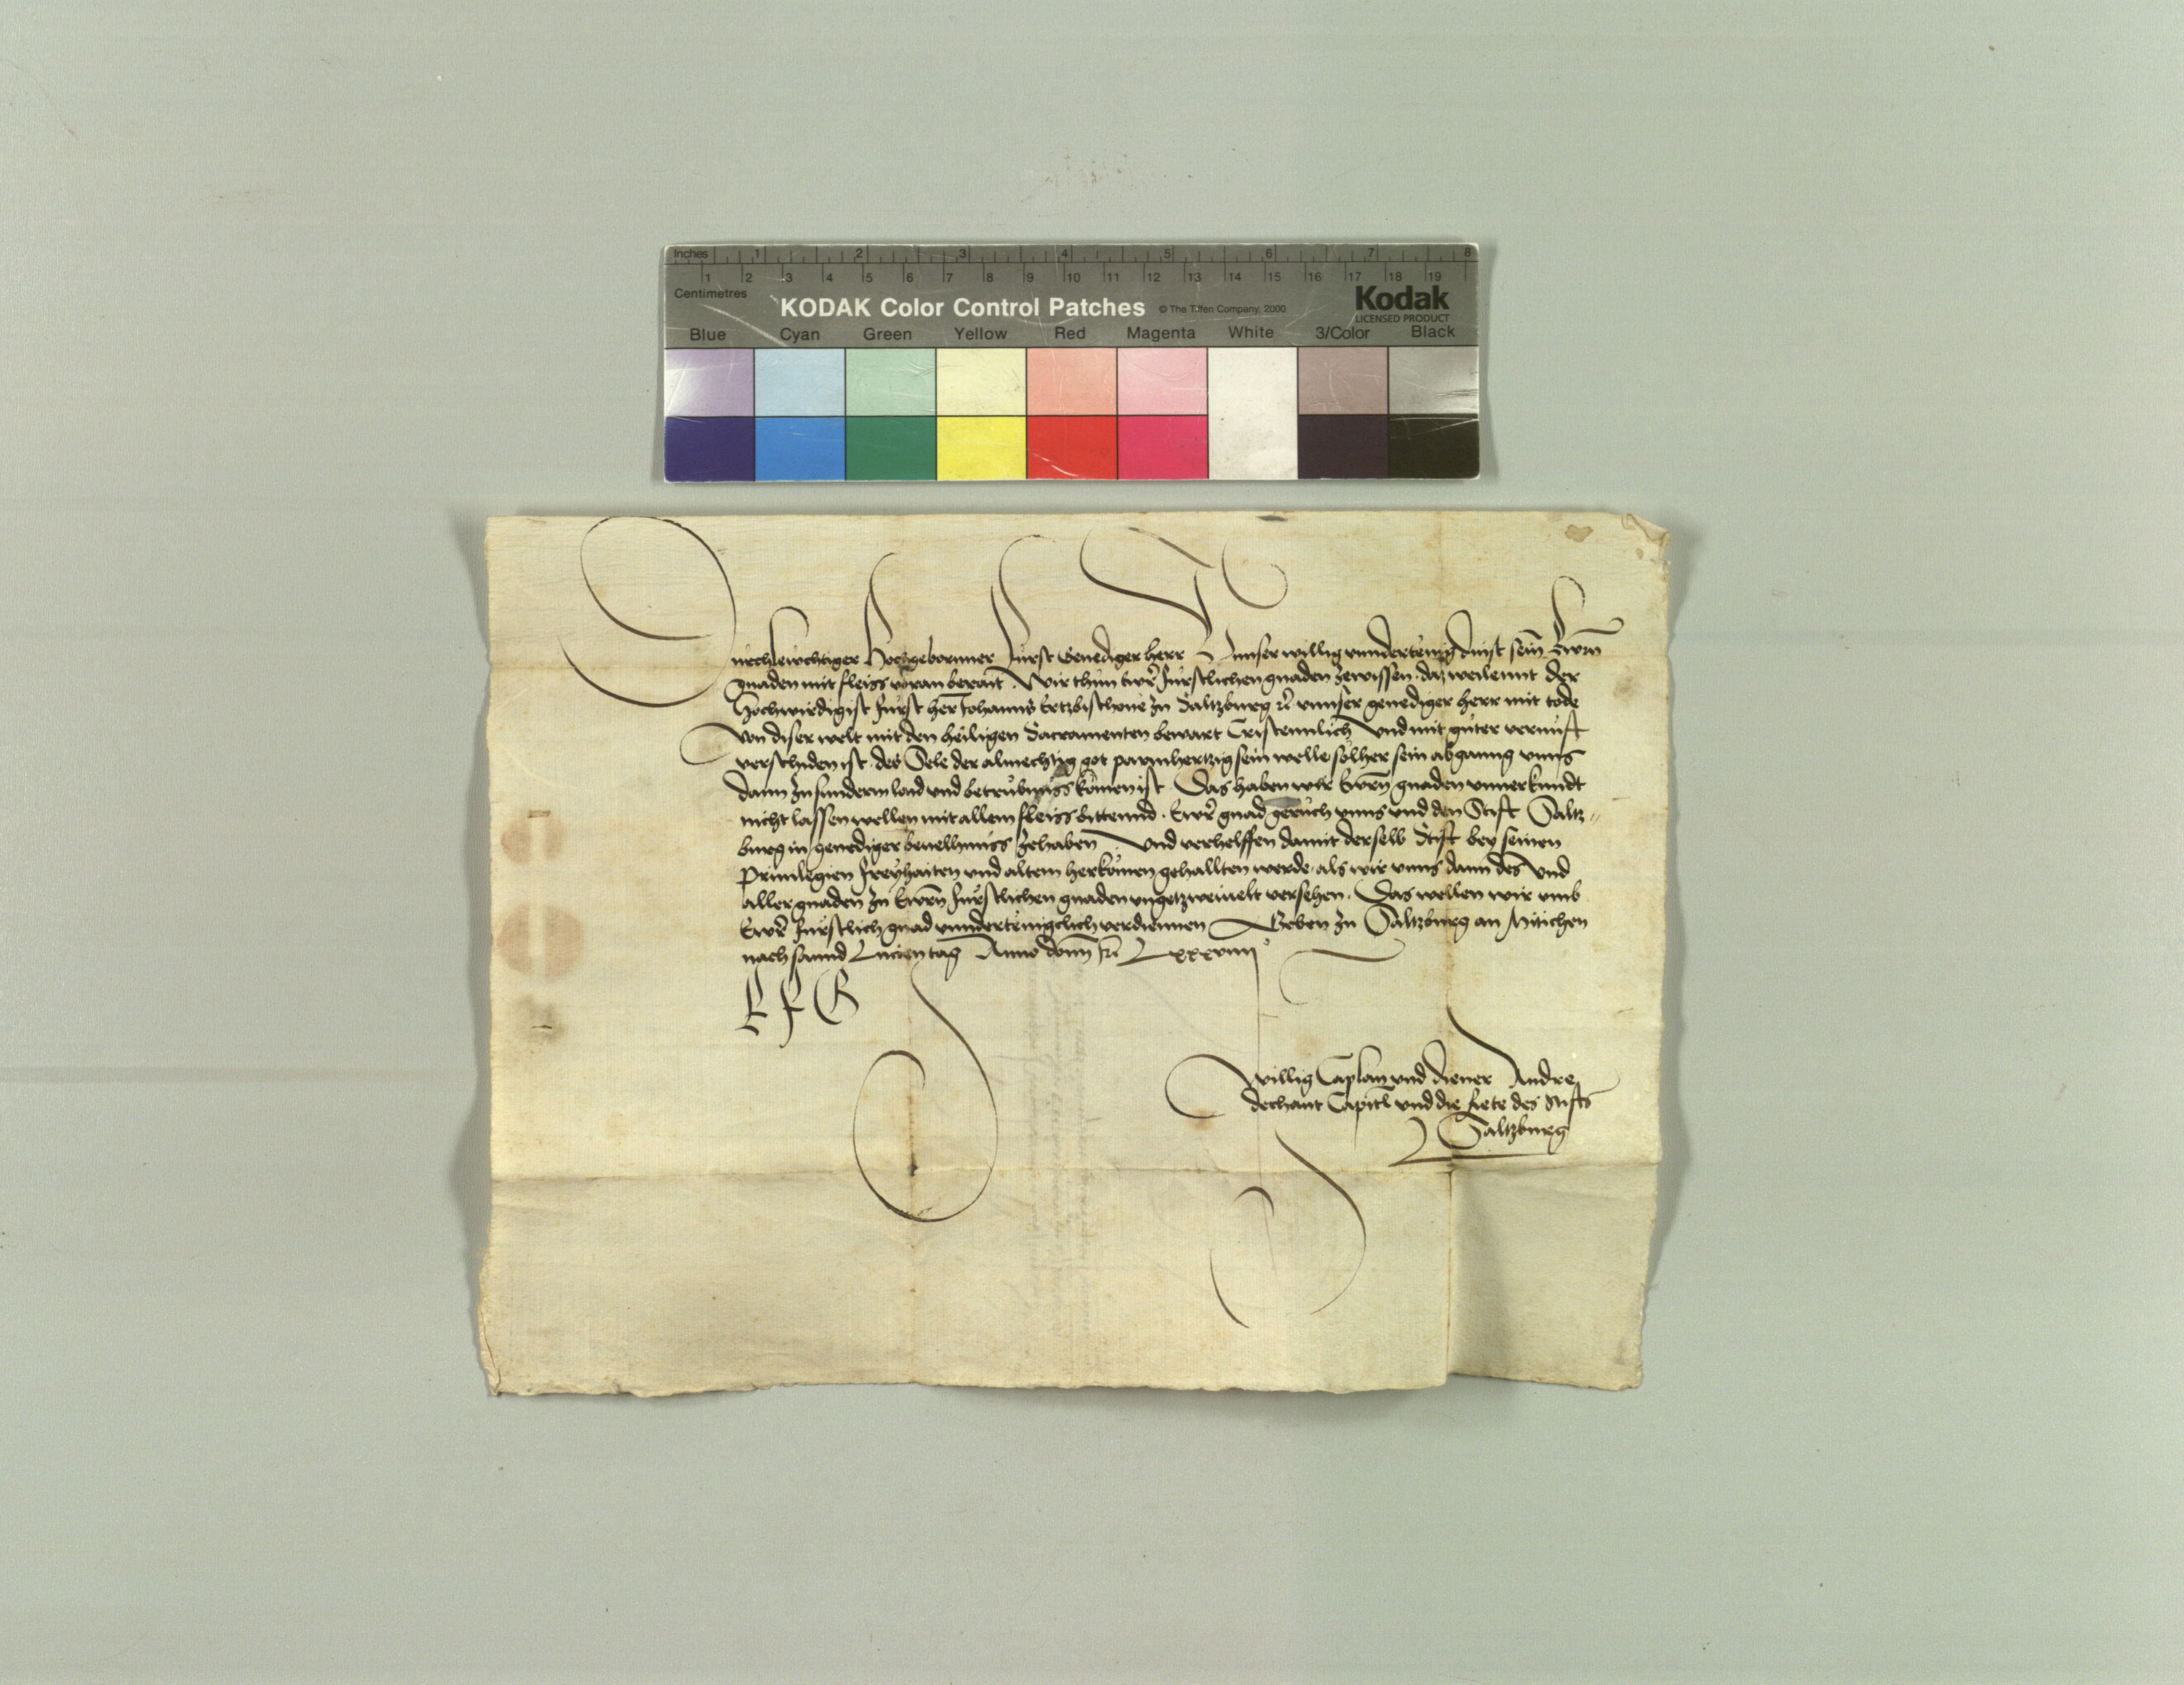 Inches 1 2 3 4 5 6 7 8
1 2 3 4 5 6 7 8 9 10 11 12 13 14 15 16 17 18 19
Centimetres
KODAK Color Control Patches © The Tiffen Company, 2000 Kodak
LICENSED PRODUCT
Blue Cyan Green Yellow Red Magenta White 3/Color Black
Durchlewchtiger Hochgebornner Fürst Genediger herr Unnser willig unndertenig dinst sein Ewrn
gnaden mit fleiss voran berait. Wir thun Ewr Fürstlichen gnaden zewissen. daz weilennt der
Hochwirdigist Fürst her Johanns Ertzbischoue zu Saltzburg rc unnser genediger herr mit tode
von diser welt mit den heiligen Sacramenten bewart Cristennlich und mit guter vernufft
verschiden ist. des Sele der almechtig got parmhertzig sein welle solher sein abganng unns
dann zu sunderm laid und betrübnüss komen ist. Das haben wir Ewrn gnaden unnerkundt
nicht lassen wellen mit allem fleiss bittennd. Ewr gnad geruch unns und den Stift Saltz-
burg in genediger beuelhnüss zehaben. Und verhelffen damit derselb Stift bey seinen
Priuilegien Freyhaiten und altem herkomen gehallten werde, als wir unns dann des und
aller gnaden zu Ewrn Fürstlichen gnaden ungetzweiuelt versehen. Das wellen wir umb
Ewr Fürstlich gnad unndertenigclich verdiennen Geben zu Saltzburg an Mitichen
nach sannd Lucien tag Anno domi rc Lxxxviiii
E F G
Willig Caplan und diener Andre
dechant Capitl und die Rete des Stifts
Saltzburg